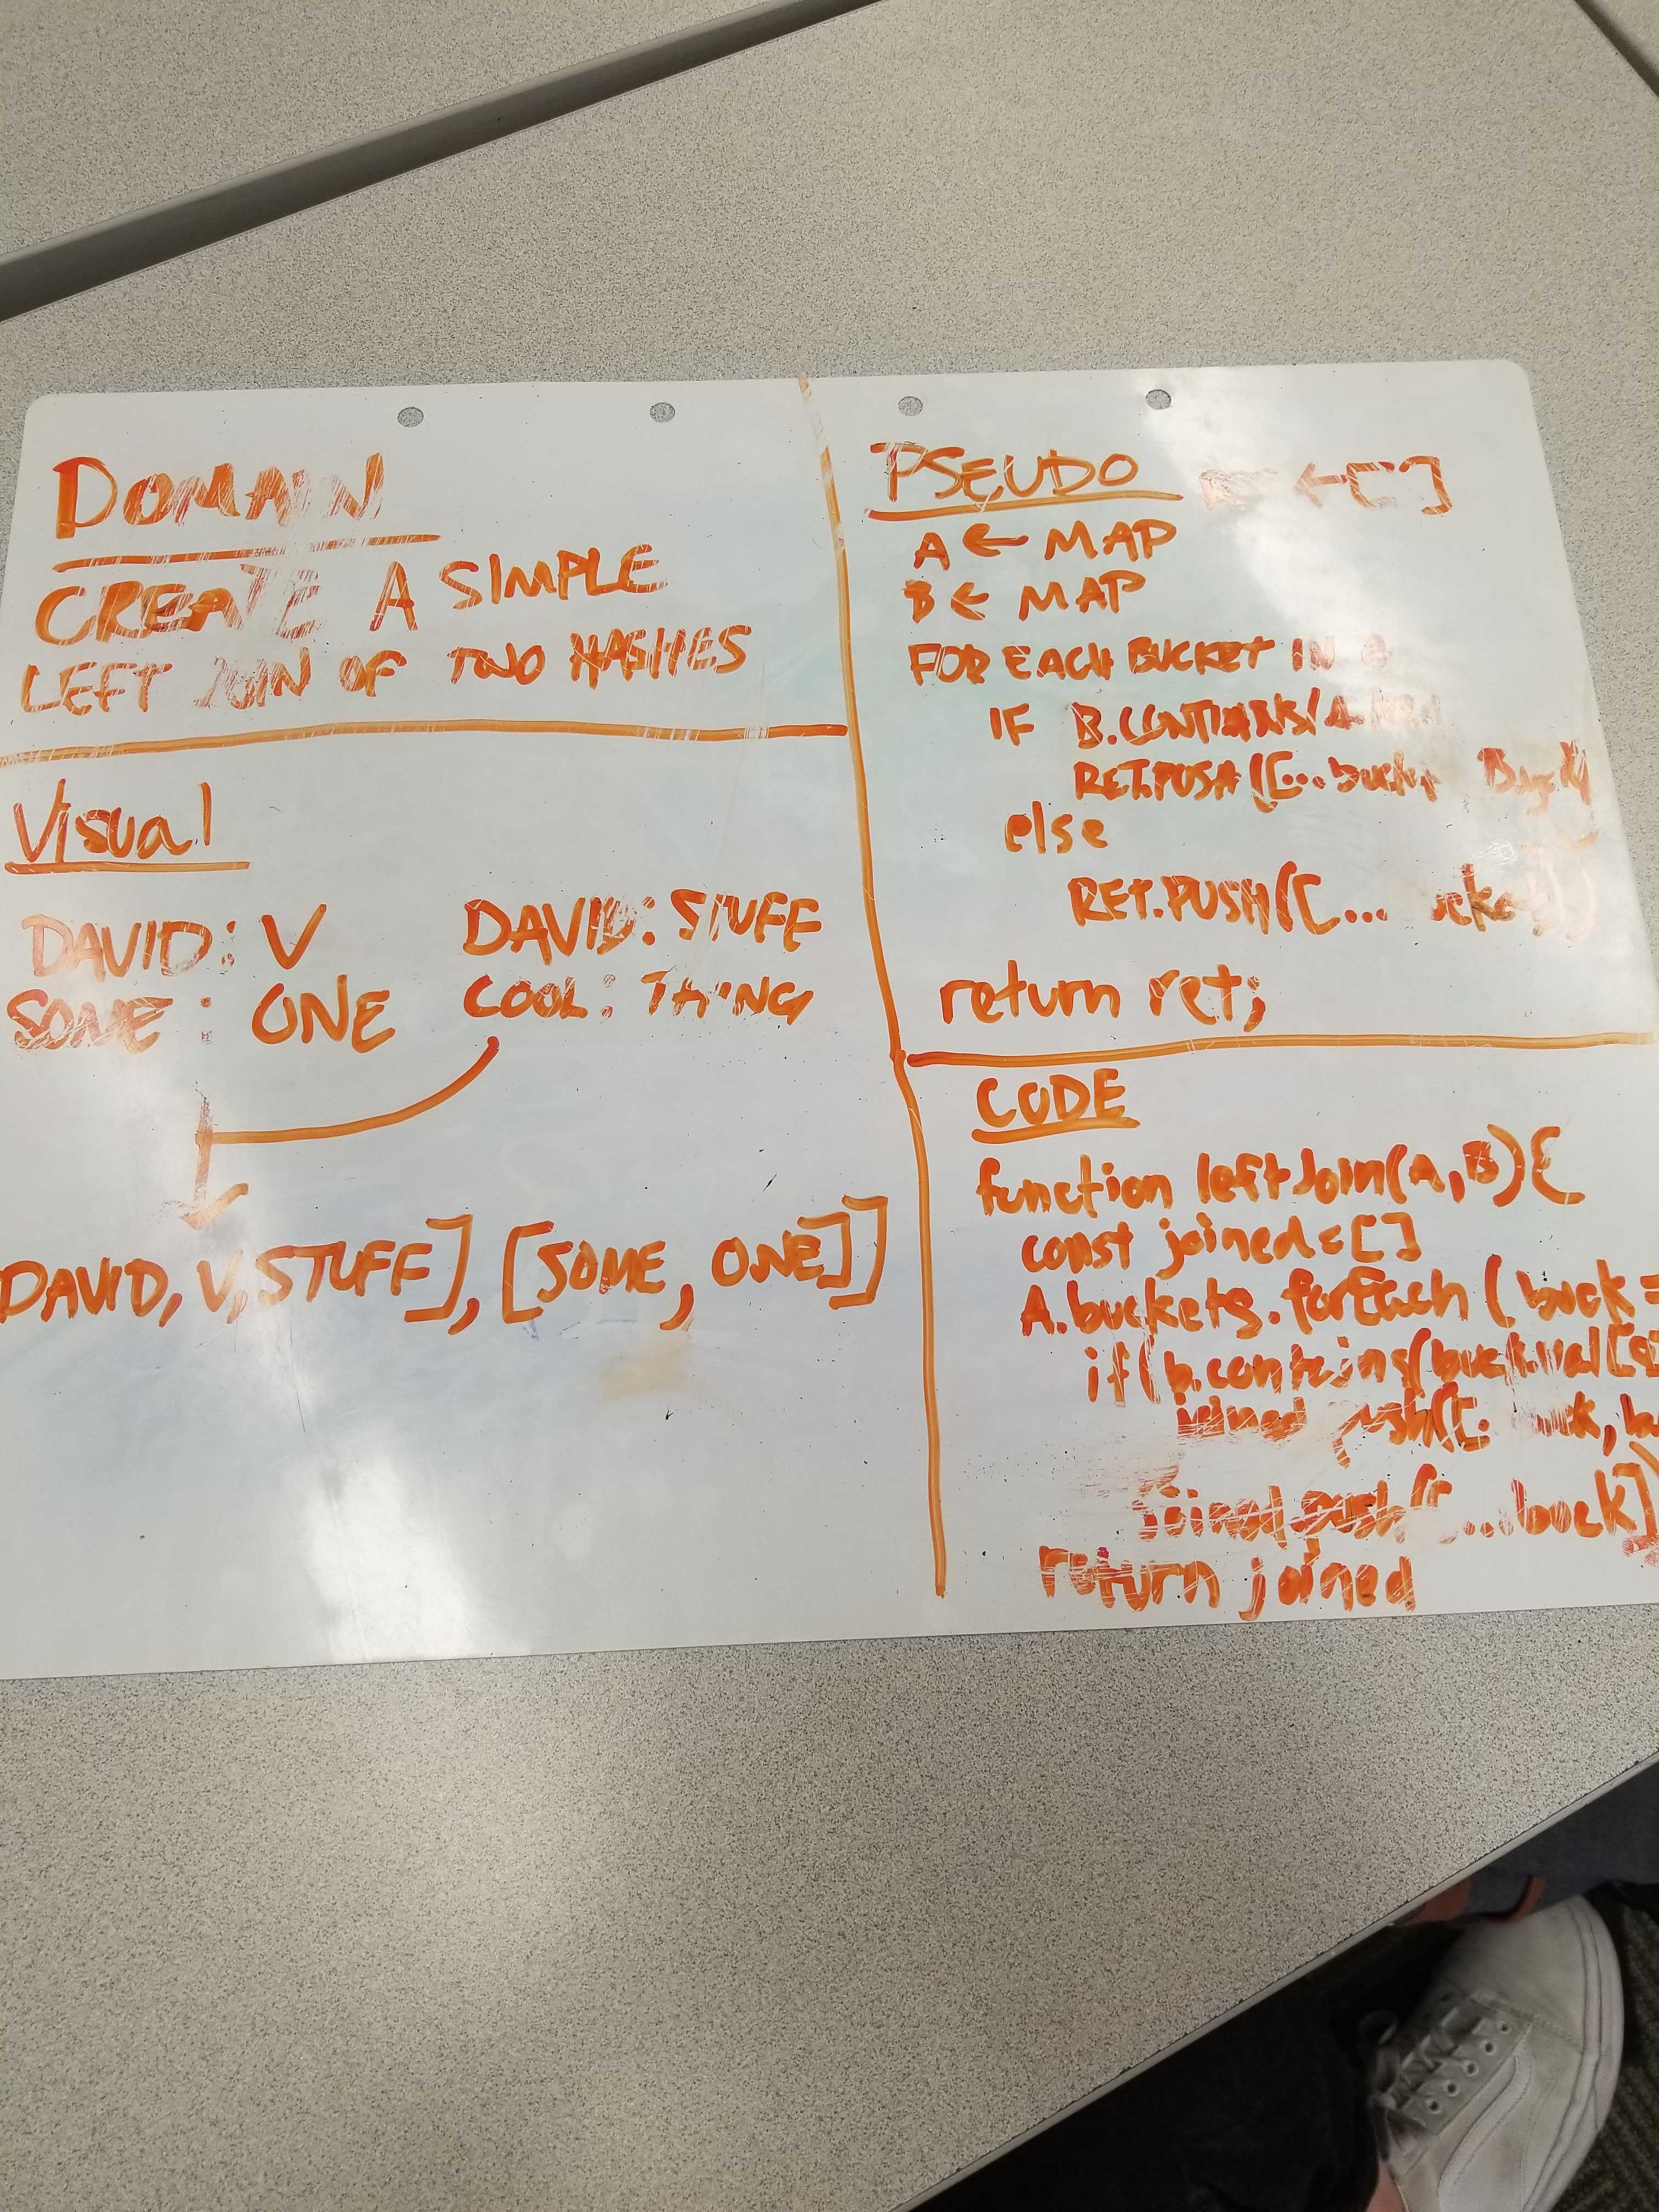 DOMAIN
CREATE A SIMPLE
LEFT JOIN OF TWO HASHES
Visual
DAVID: V
SOME: ONE
DAVID: STUFF
COOL: THING
DAVID, V, STUFF], [SOME, ONE]]
PSEUDO
← []
A ← MAP
B ← MAP
FOR EACH BUCKET IN
IF B.CONTIANS(A.
RET.PUSH([...
else
RET.PUSH([...
return ret;
CODE
function leftJoin(A,B){
const joined = []
A.buckets.forEach(buck =
if(b.contains(buck.val[0]
joined push([.. buck,
joined push([...buck]
return joined